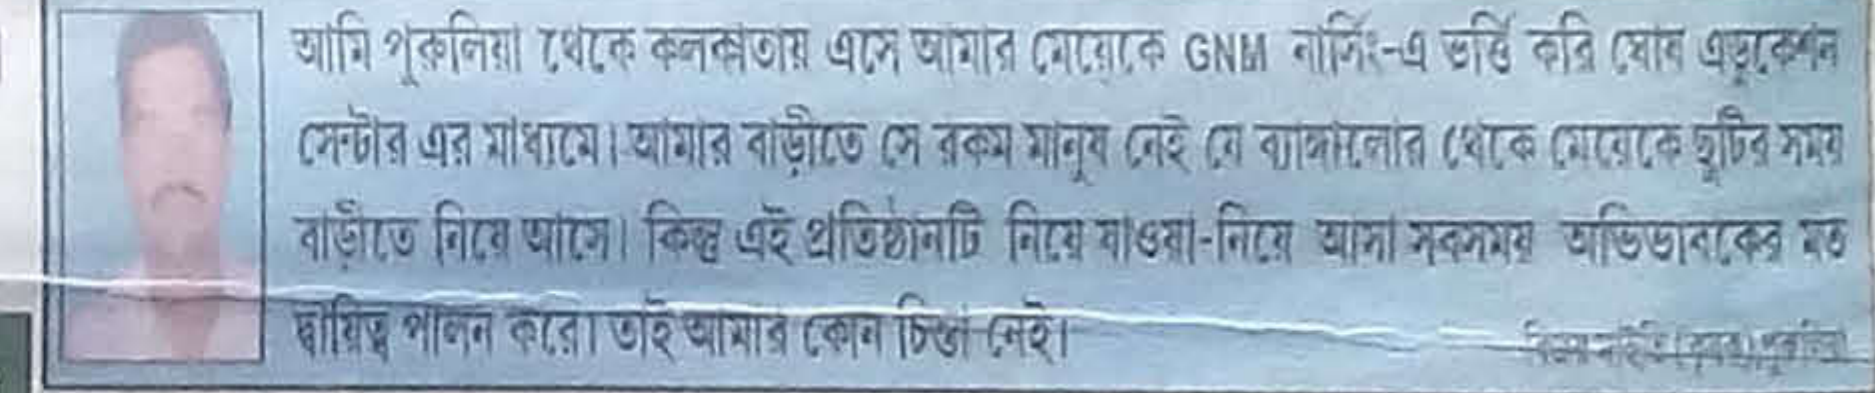 আমি পুরুলিয়া থেকে কলকাতায় এসে আমার মেয়েকে GNM নার্সিং-এ ভর্তি করি ঘোষ এডুকেশন
সেন্টার এর মাধ্যমে। আমার বাড়ীতে সে রকম মানুষ নেই যে ব্যাঙ্গালোর থেকে মেয়েকে ছুটির সময়
বাড়ীতে নিয়ে আসে। কিন্তু এই প্রতিষ্ঠানটি নিয়ে যাওয়া-নিয়ে আসা সবসময় অভিভাবকের মত
দ্বায়িত্ব পালন করে। তাই আমার কোন চিন্তা নেই।
পুরুলিয়া